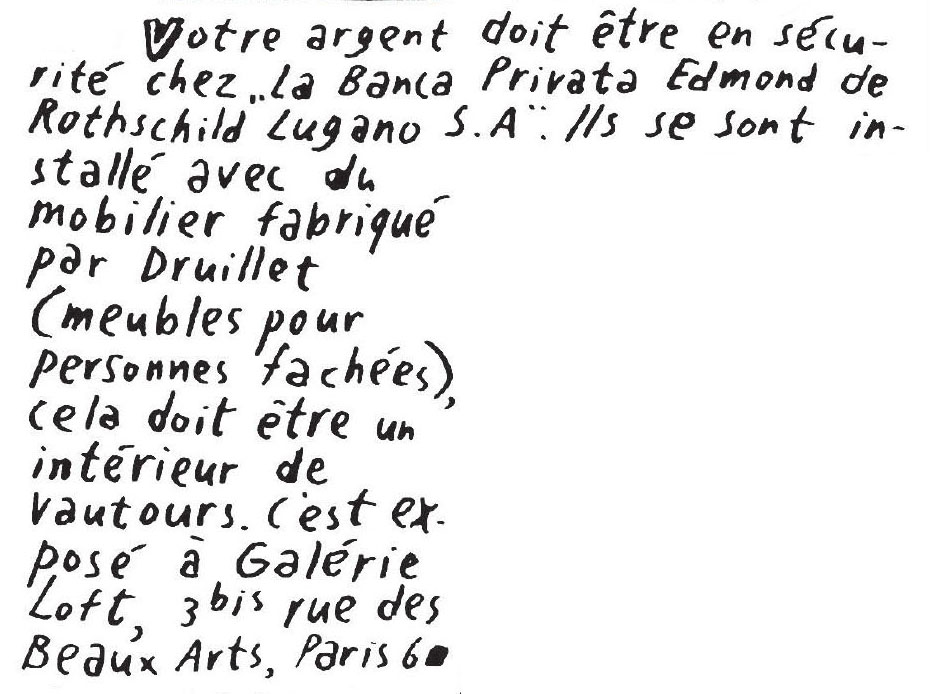 Votre argent doit être en sécu-
rité chez „La Banca Privata Edmond de
Rothschild Lugano S.A¨. Ils se sont in-
stallé avec du
mobilier fabriqué
par Druillet
(meubles pour
personnes fachées),
cela doit être un
intérieur de
vautours. C'est ex-
posé à Galérie
Loft, 3 bis rue des
Beaux Arts, Paris 6